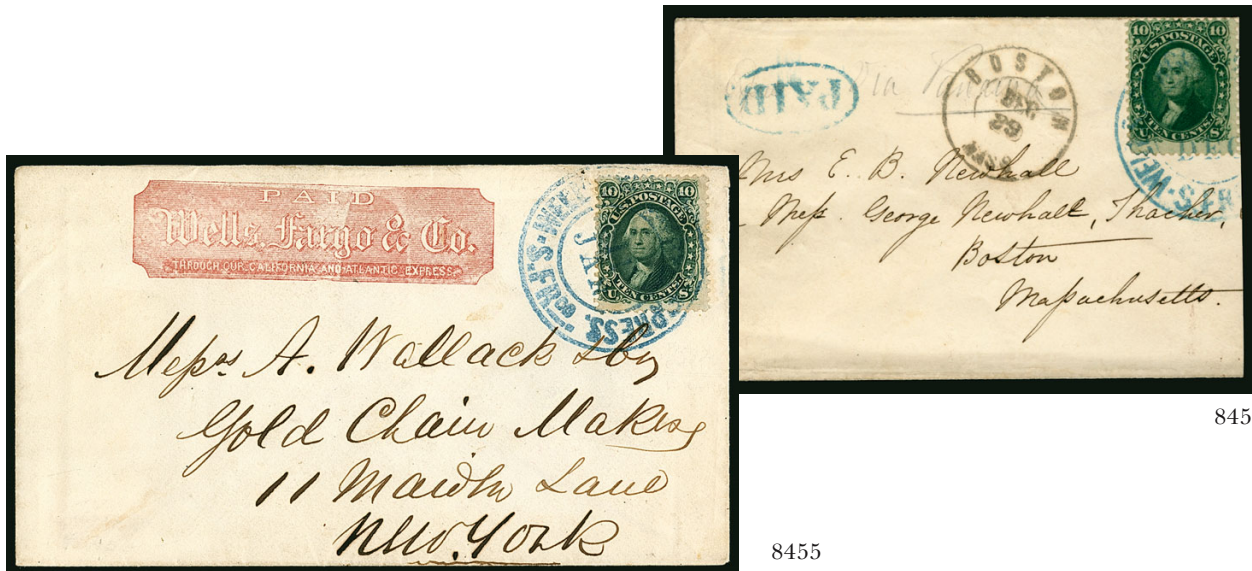 PAID
Wells, Fargo & Co.
THROUGH OUR CALIFORNIA AND ATLANTIC EXPRESS
10 10
U.S. POSTAGE
TEN CENTS
U S
JAN
WELLS
EXPRESS.
Messrs A. Wallack
Gold Chain Makers
11 Maiden Lane
New. York
8455
PAID
Via Panama
BOSTON
DEC
29
MASS
10 10
U.S. POSTAGE
TEN CENTS
U S
DEC
Mrs E. B. Newhall
Mess. George Newhall, Thacher,
Boston
Massachusetts.
845